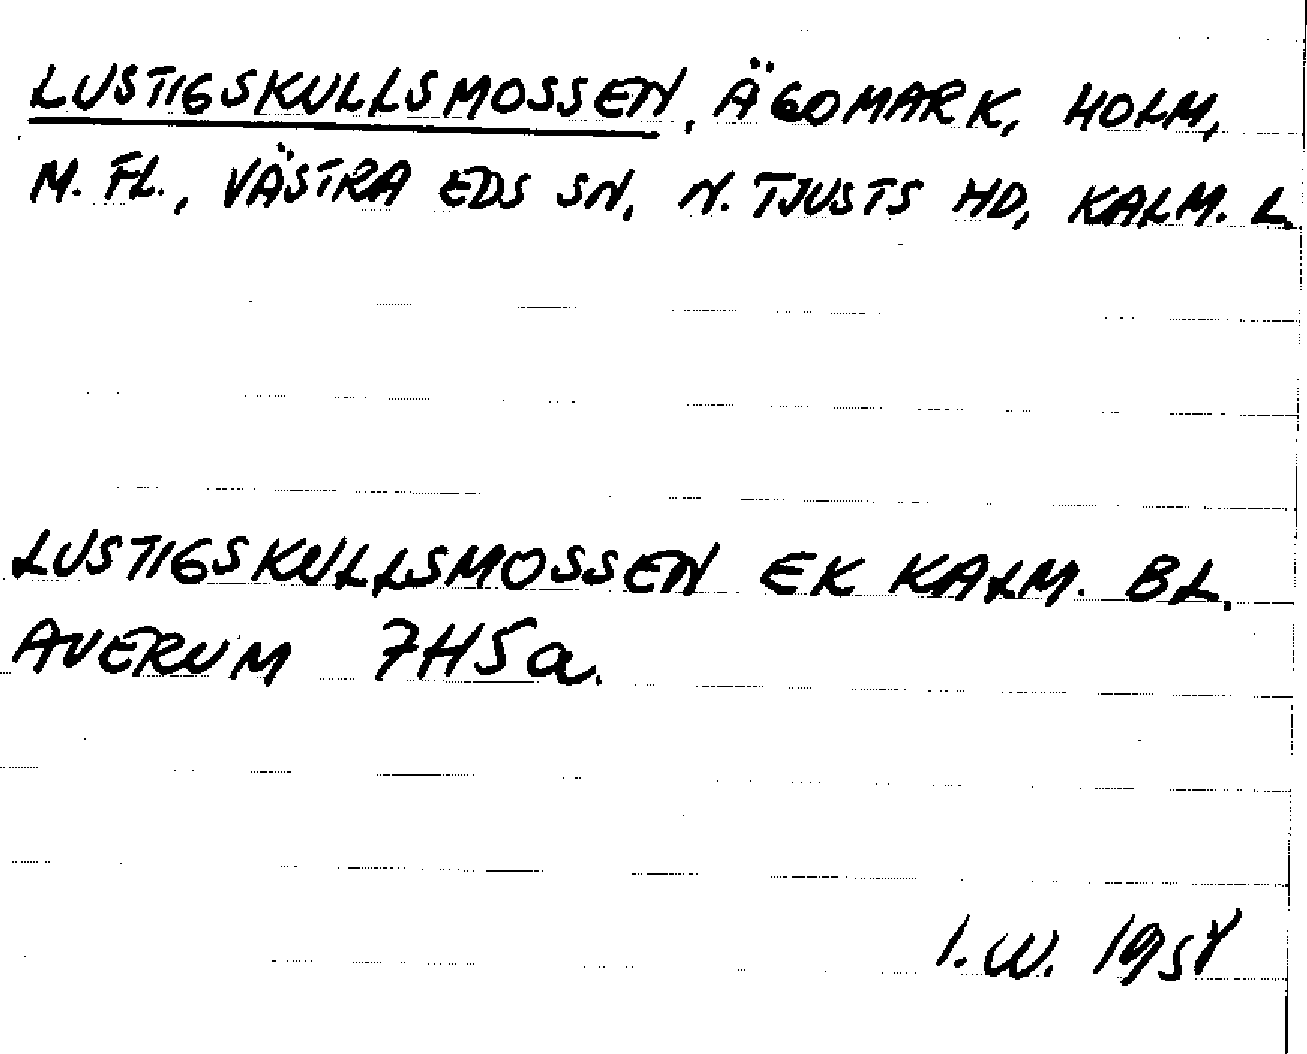 LUSTIGSKULLSMOSSEN, ÄGOMARK, HOLM,
M. FL., VÄSTRA EDS SN, N. TJUSTS HD, KALM. L.
LUSTIGSKULLSMOSSEN EK KALM. BL.
AVERUM 7H5a.
I.W. 1958